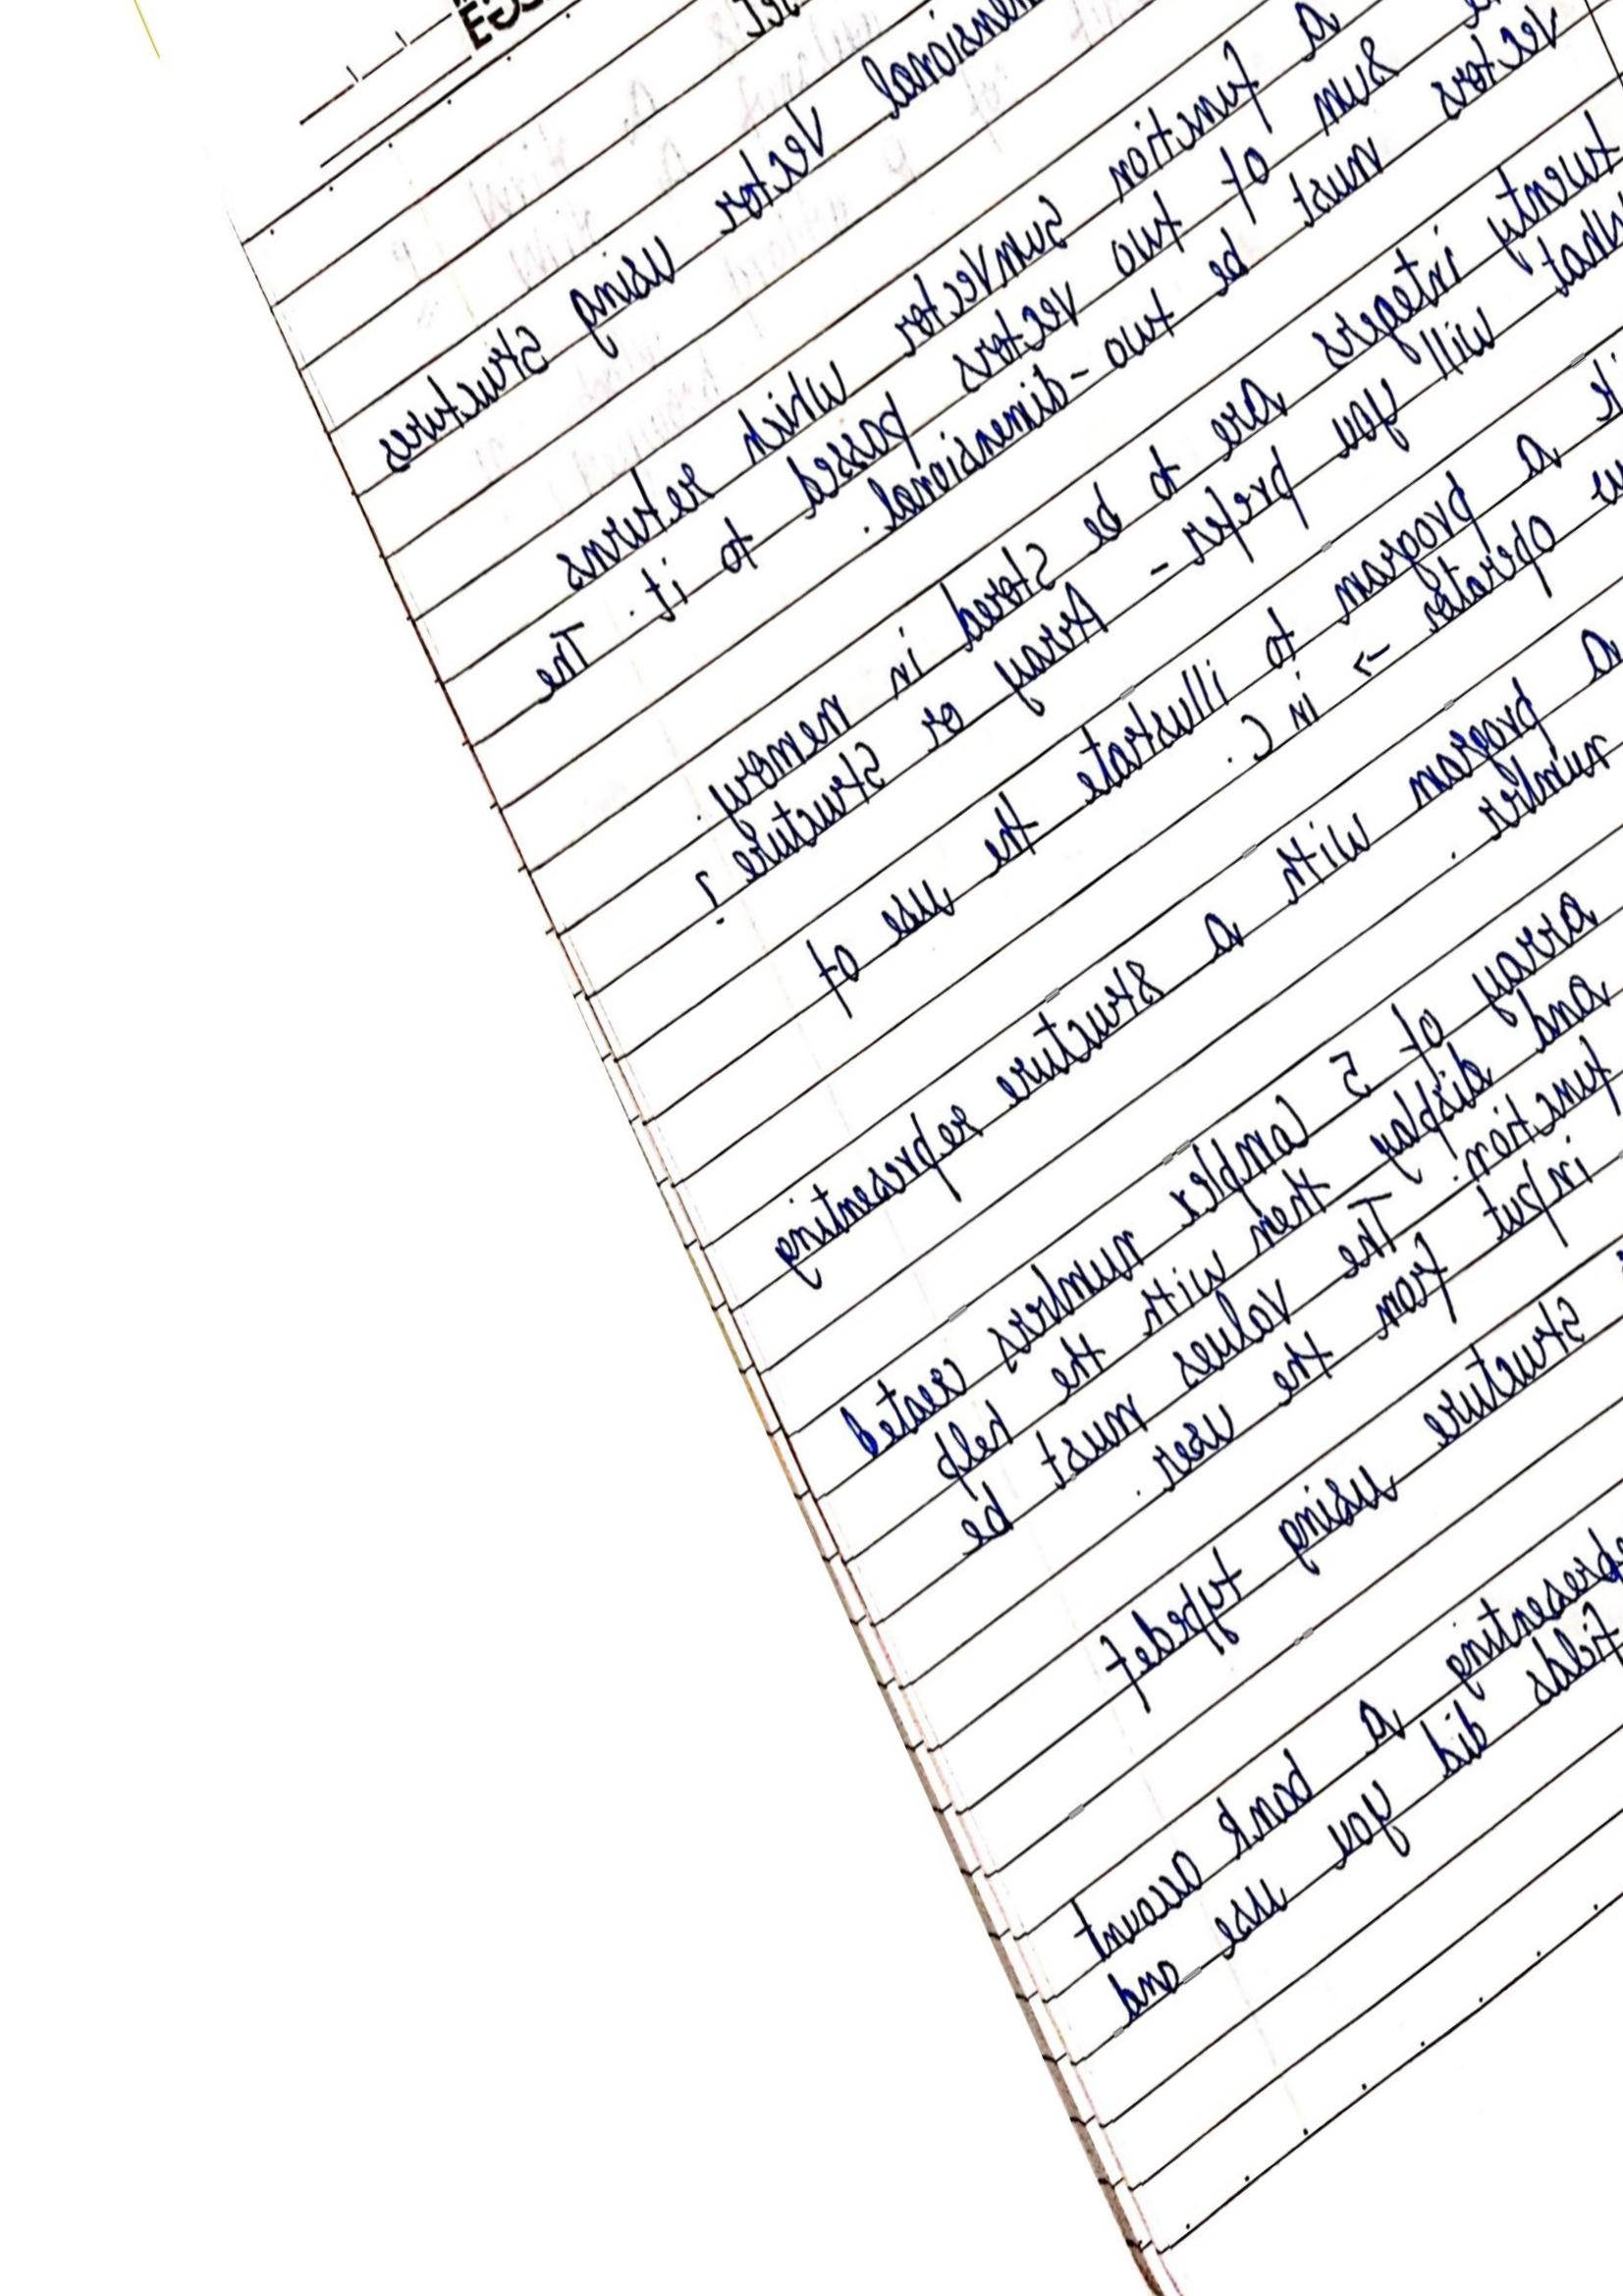 Set
Vector using Structures
a function SumVector which returns
sum of two vectors passed to it. The
vectors must be two-dimensional.
twenty integers are to be Stored in memory.
will you prefer - Array or Structure ?
a program to illustrate the use of
operator → in C.
a program with a structure representing
number.
array of 5 Complex numbers created
and display them with the help
function. The values must be
input from the user.
Structure using typedef
a bank account
fields did you use and